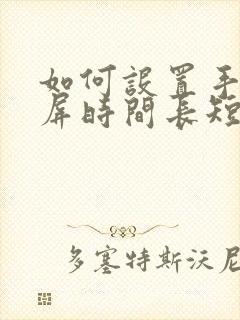 如何設置手
屏時間長短
多塞特斯沃尼